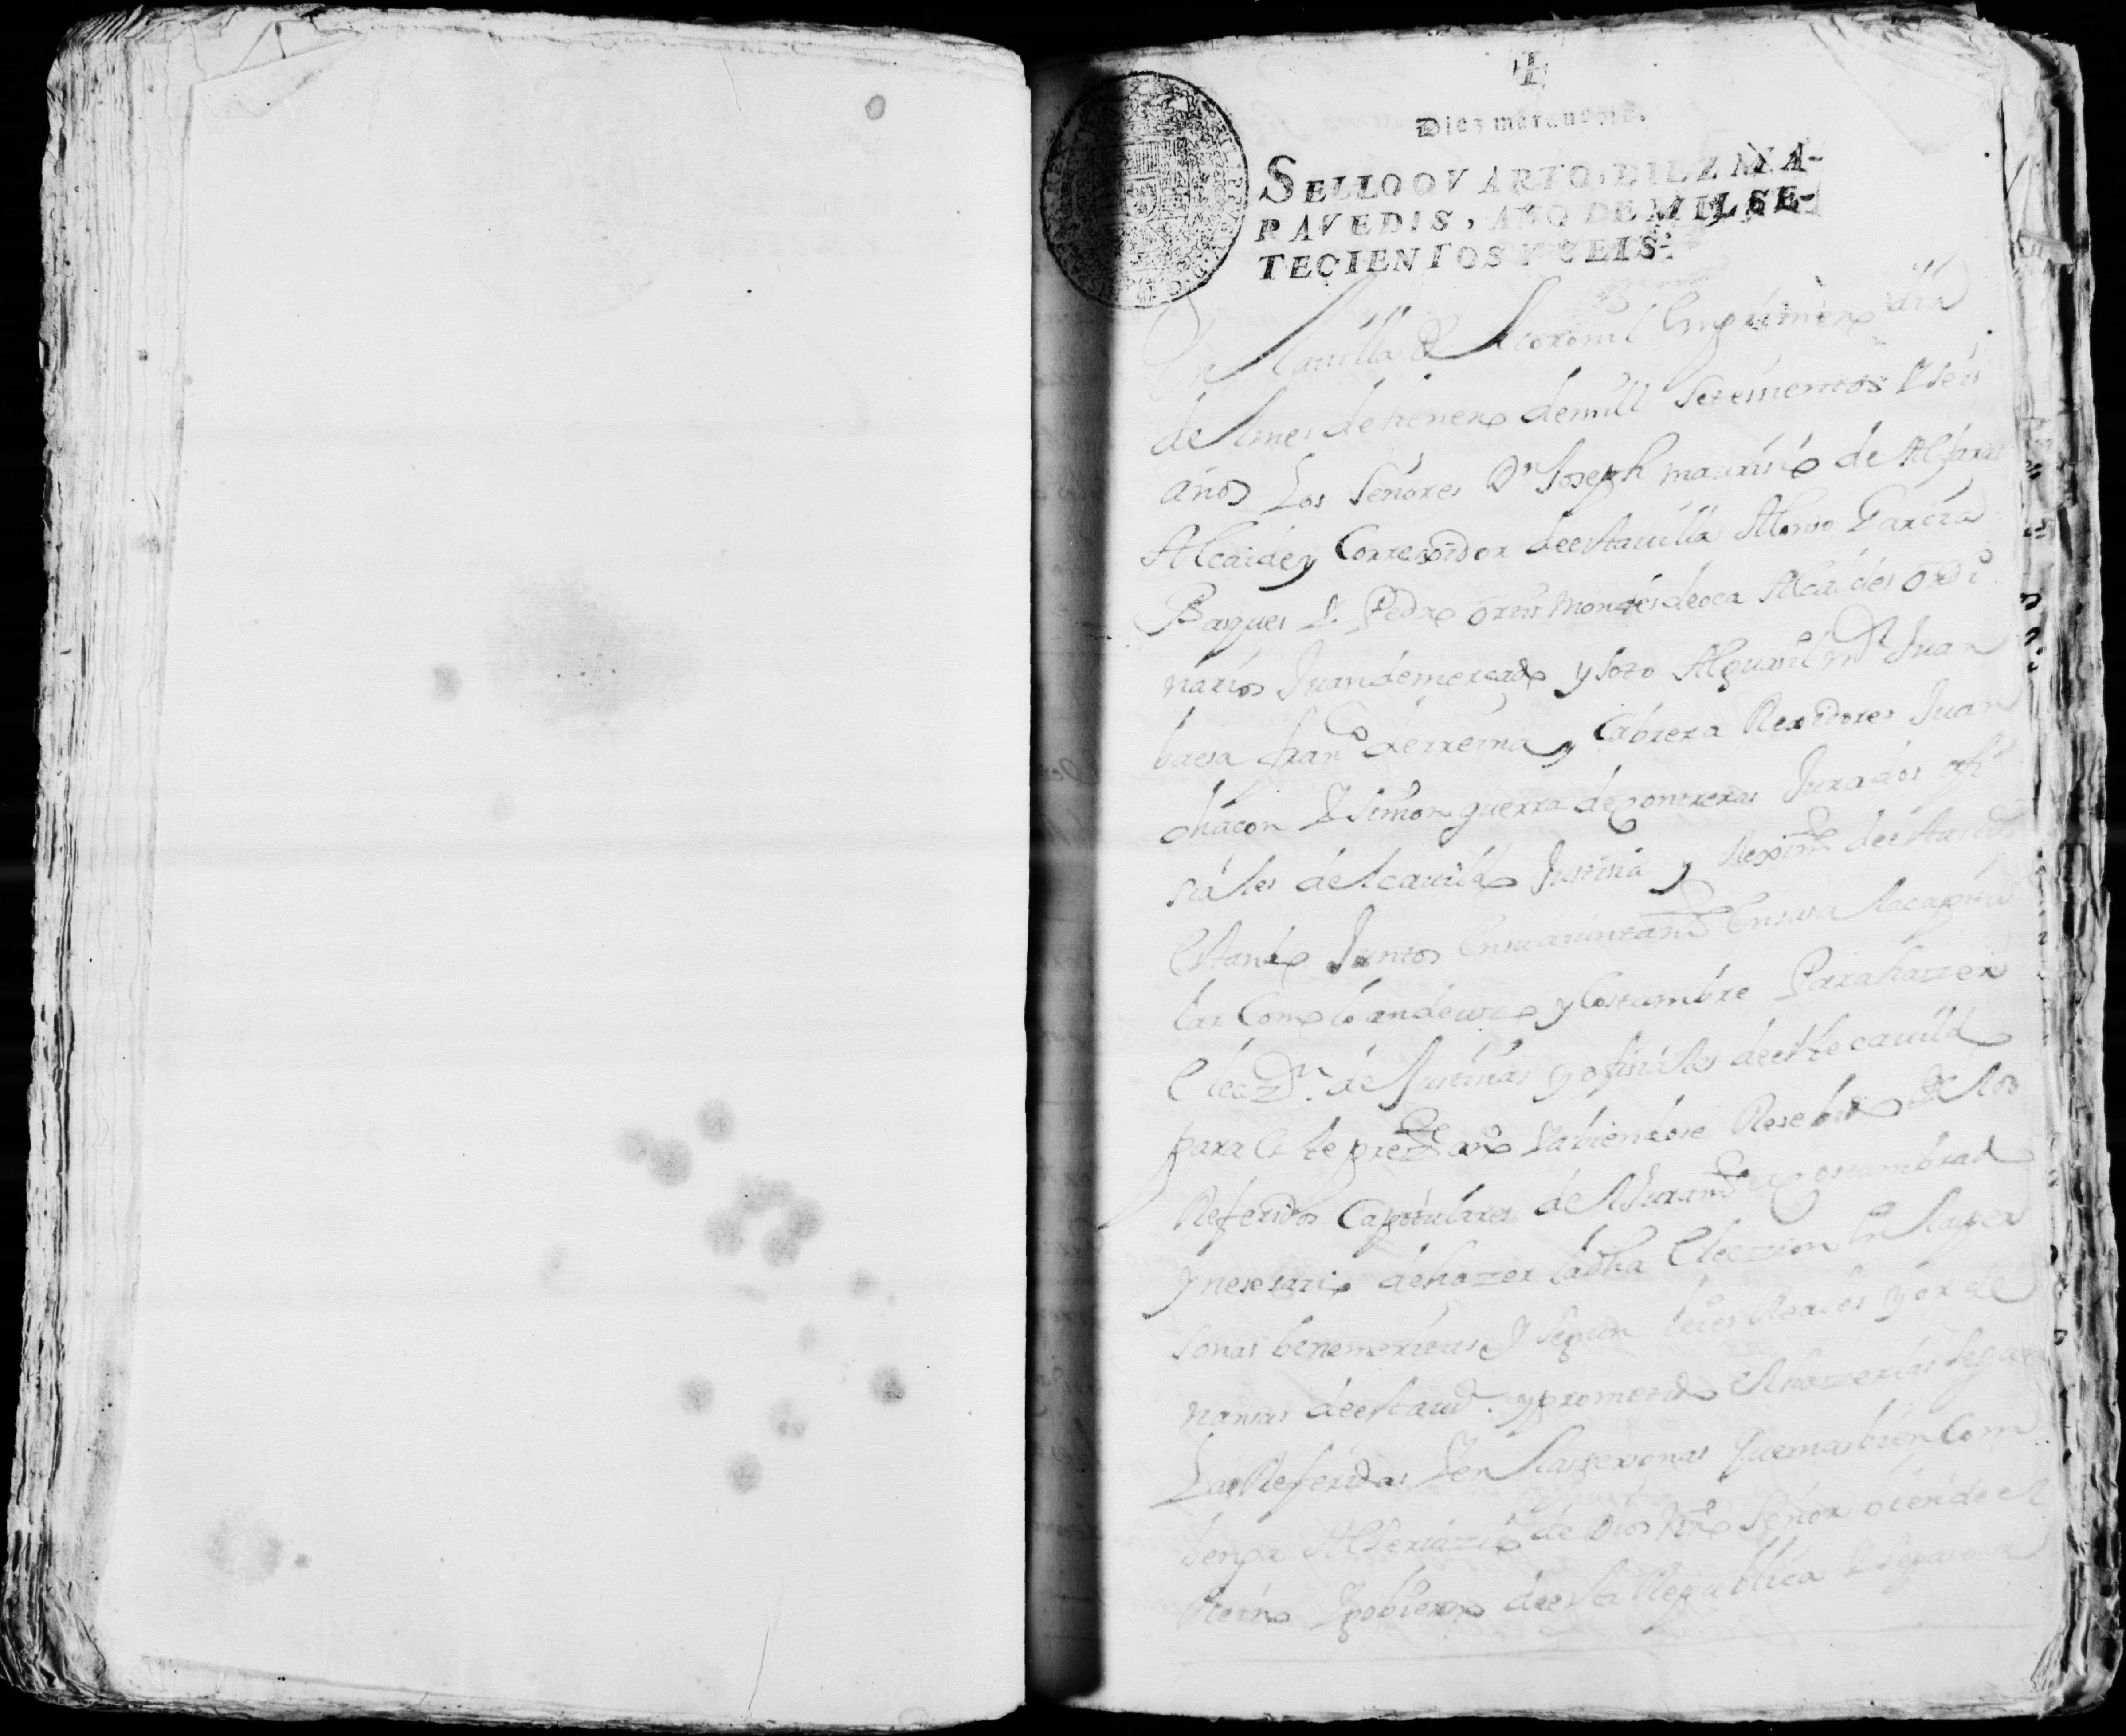 Diez marauedis.
SELLO QVARTO, DIEZ MA-
RAVEDIS, AÑO DE MIL SE-
TECIENTOS Y SEIS.
En la uilla de el coronil En primero dia
del mes de henero de mill Setesientos y seis
años Los Señores Dn Joseph maurisio de Alfaras
Alcaide y Correxidor de esta uilla Alonso Garcia
Basques y Pedro ortis montes de oca Alcaldes ordi
narios Juan de mercado y soto Alguasil mr Juan
baesa franco de rreina y Cabrera Rexidores Juan
chacon y Simon guerra de contreras Jurados ofi
siales del cauildo Justisia y Reximto de esta ud
Estando Juntos En su aiuntamto En su sala capitu
lar Como lo an de uso y Costumbre Para hazer
Elecson de Justisias y ofisiales de este cauildo
para este preste año y abiendose Resebido de los
Referidos Capitulares el Juramto acostumbrado
y nesesario de hazer la dha Eleczion En las per
sonas benemeritas y segun leies Reales y orde
nansas de esta ud. y prometido el hazerlas segun
Las Referidas y en las personas que mas bien Com
benga Al Seruizio de Dios nro Señor bien de el
Reino y gobierno de esta Republica y